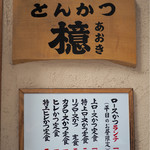 とんかつ
檍
あおき
ロースかつランチ
上ロースかつ定食
特上ロースかつ定食
リブロースかつ定食
カタロースかつ定食
ヒレかつ定食
特上ヒレかつ定食